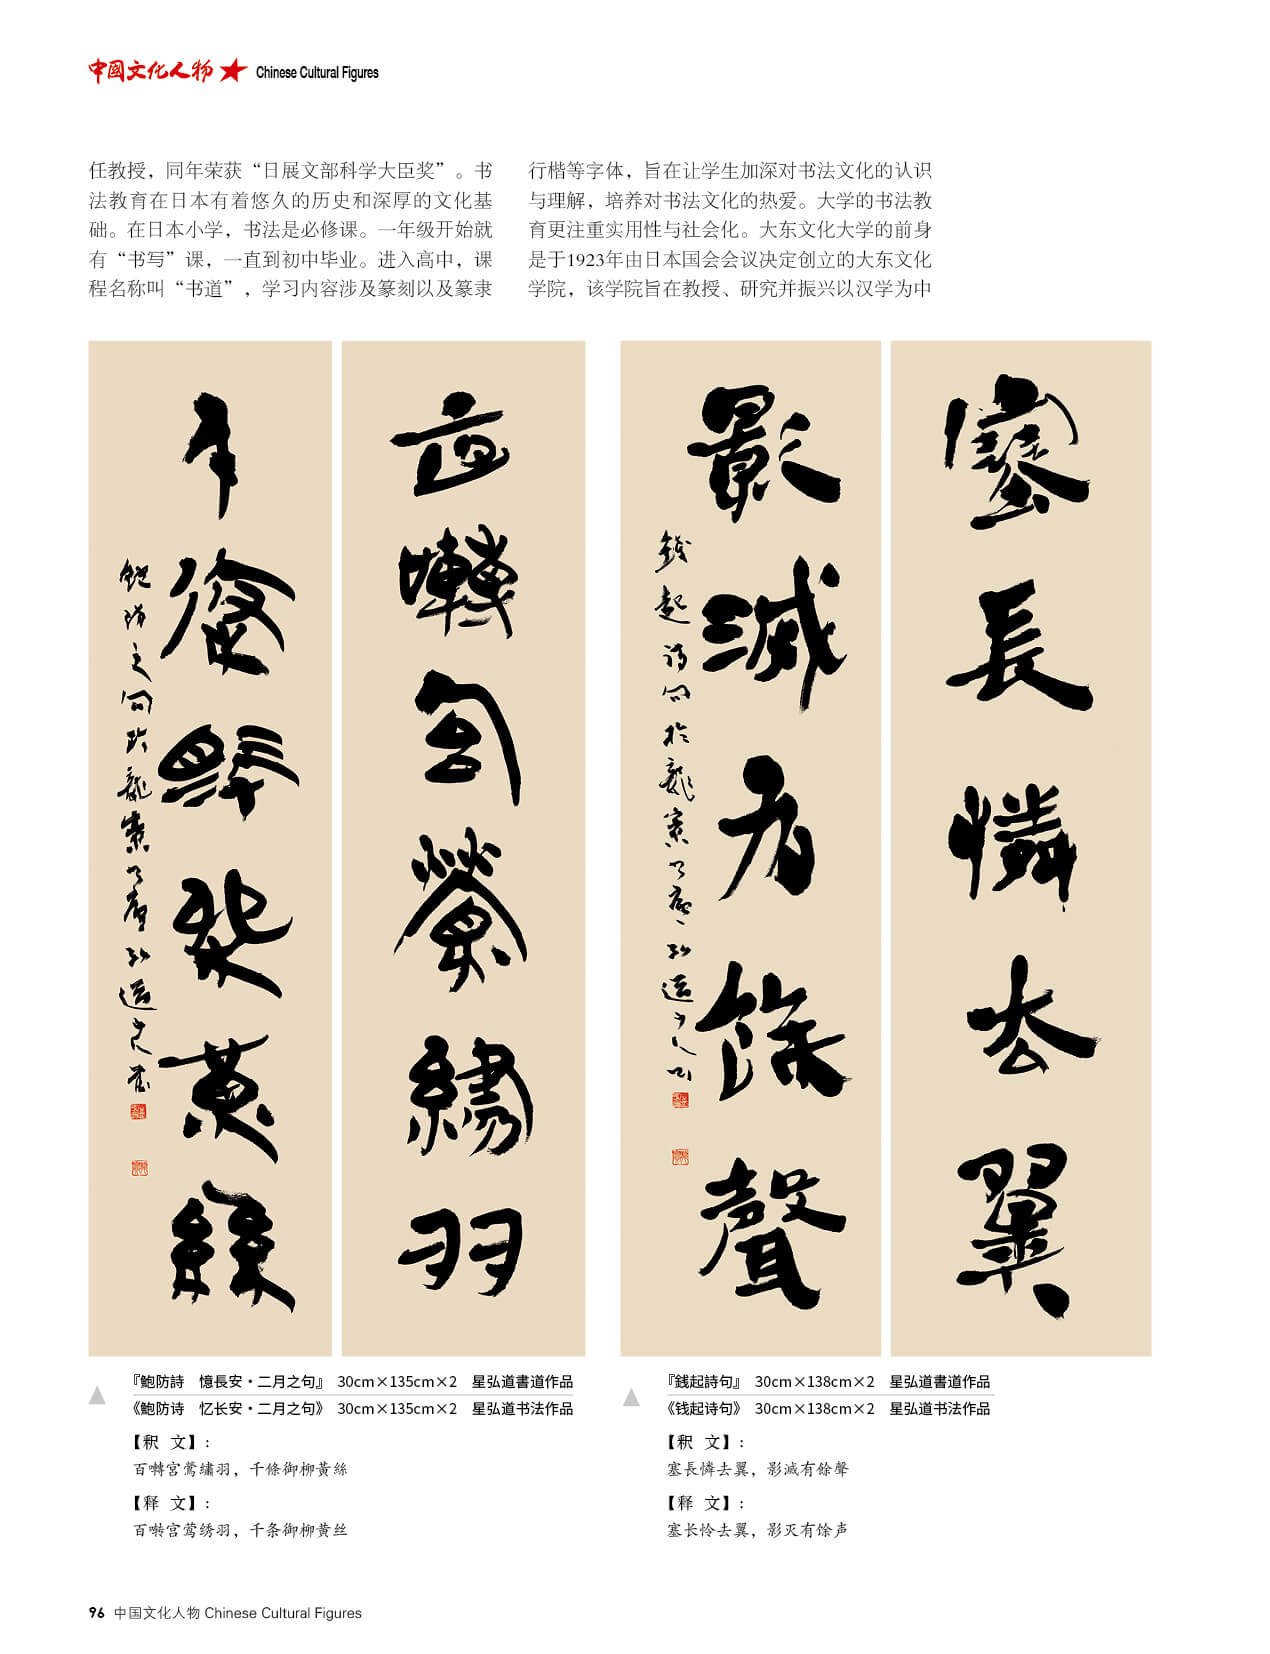 中國文化人物 ★ Chinese Cultural Figures
任教授，同年荣获“日展文部科学大臣奖”。书
法教育在日本有着悠久的历史和深厚的文化基
础。在日本小学，书法是必修课。一年级开始就
有“书写”课，一直到初中毕业。进入高中，课
程名称叫“书道”，学习内容涉及篆刻以及篆隶
行楷等字体，旨在让学生加深对书法文化的认识
与理解，培养对书法文化的热爱。大学的书法教
育更注重实用性与社会化。大东文化大学的前身
是于1923年由日本国会会议决定创立的大东文化
学院，该学院旨在教授、研究并振兴以汉学为中
百囀宮鶯繡羽
千條御柳黃絲
鮑防之句
塞長憐去翼
影滅有餘聲
錢起詩句於龍
『鮑防詩　憶長安・二月之句』　30cm×135cm×2　星弘道書道作品
《鲍防诗　忆长安・二月之句》　30cm×135cm×2　星弘道书法作品
【釈　文】：
百囀宮鶯繡羽，千條御柳黃絲
【释　文】：
百啭宫莺绣羽，千条御柳黄丝
『銭起詩句』　30cm×138cm×2　星弘道書道作品
《钱起诗句》　30cm×138cm×2　星弘道书法作品
【釈　文】：
塞長憐去翼，影滅有餘聲
【释　文】：
塞长怜去翼，影灭有馀声
96 中国文化人物 Chinese Cultural Figures